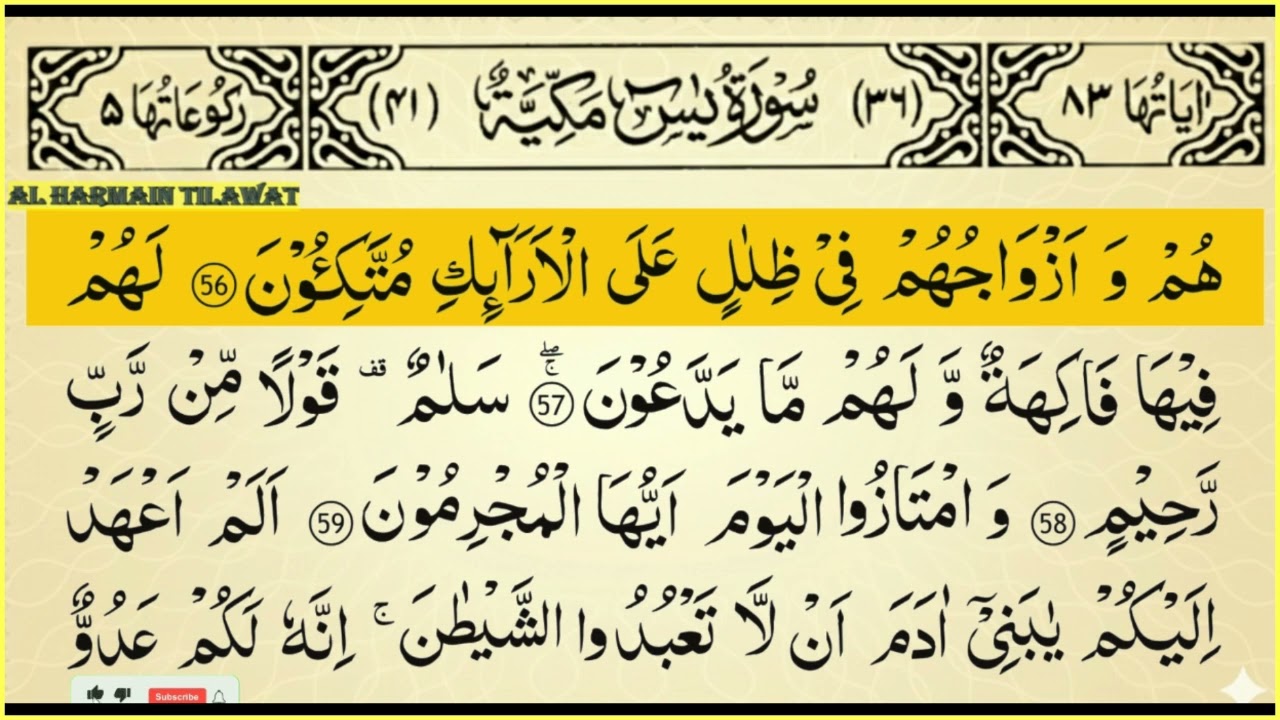 اٰیَاتُهَا ۸۳ (۳۶) سُوْرَةُ یٰسٓ مَکِّیَّةٌ (۴۱) رُکُوْعَاتُهَا ۵
AL HARMAIN TILAWAT
هُمْ وَ اَزْوَاجُهُمْ فِیْ ظِلٰلٍ عَلَی الْاَرَآئِكِ مُتَّكِـُٔوْنَ 56 لَهُمْ
فِیْهَا فَاكِهَةٌ وَّ لَهُمْ مَّا یَدَّعُوْنَ ۖۚ 57 سَلٰمٌ قف قَوْلًا مِّنْ رَّبٍّ
رَّحِیْمٍ 58 وَ امْتَازُوا الْیَوْمَ اَیُّهَا الْمُجْرِمُوْنَ 59 اَلَمْ اَعْهَدْ
اِلَیْكُمْ یٰبَنِیْۤ اٰدَمَ اَنْ لَّا تَعْبُدُوا الشَّیْطٰنَ ۚ اِنَّهٗ لَكُمْ عَدُوٌّ
Subscribe